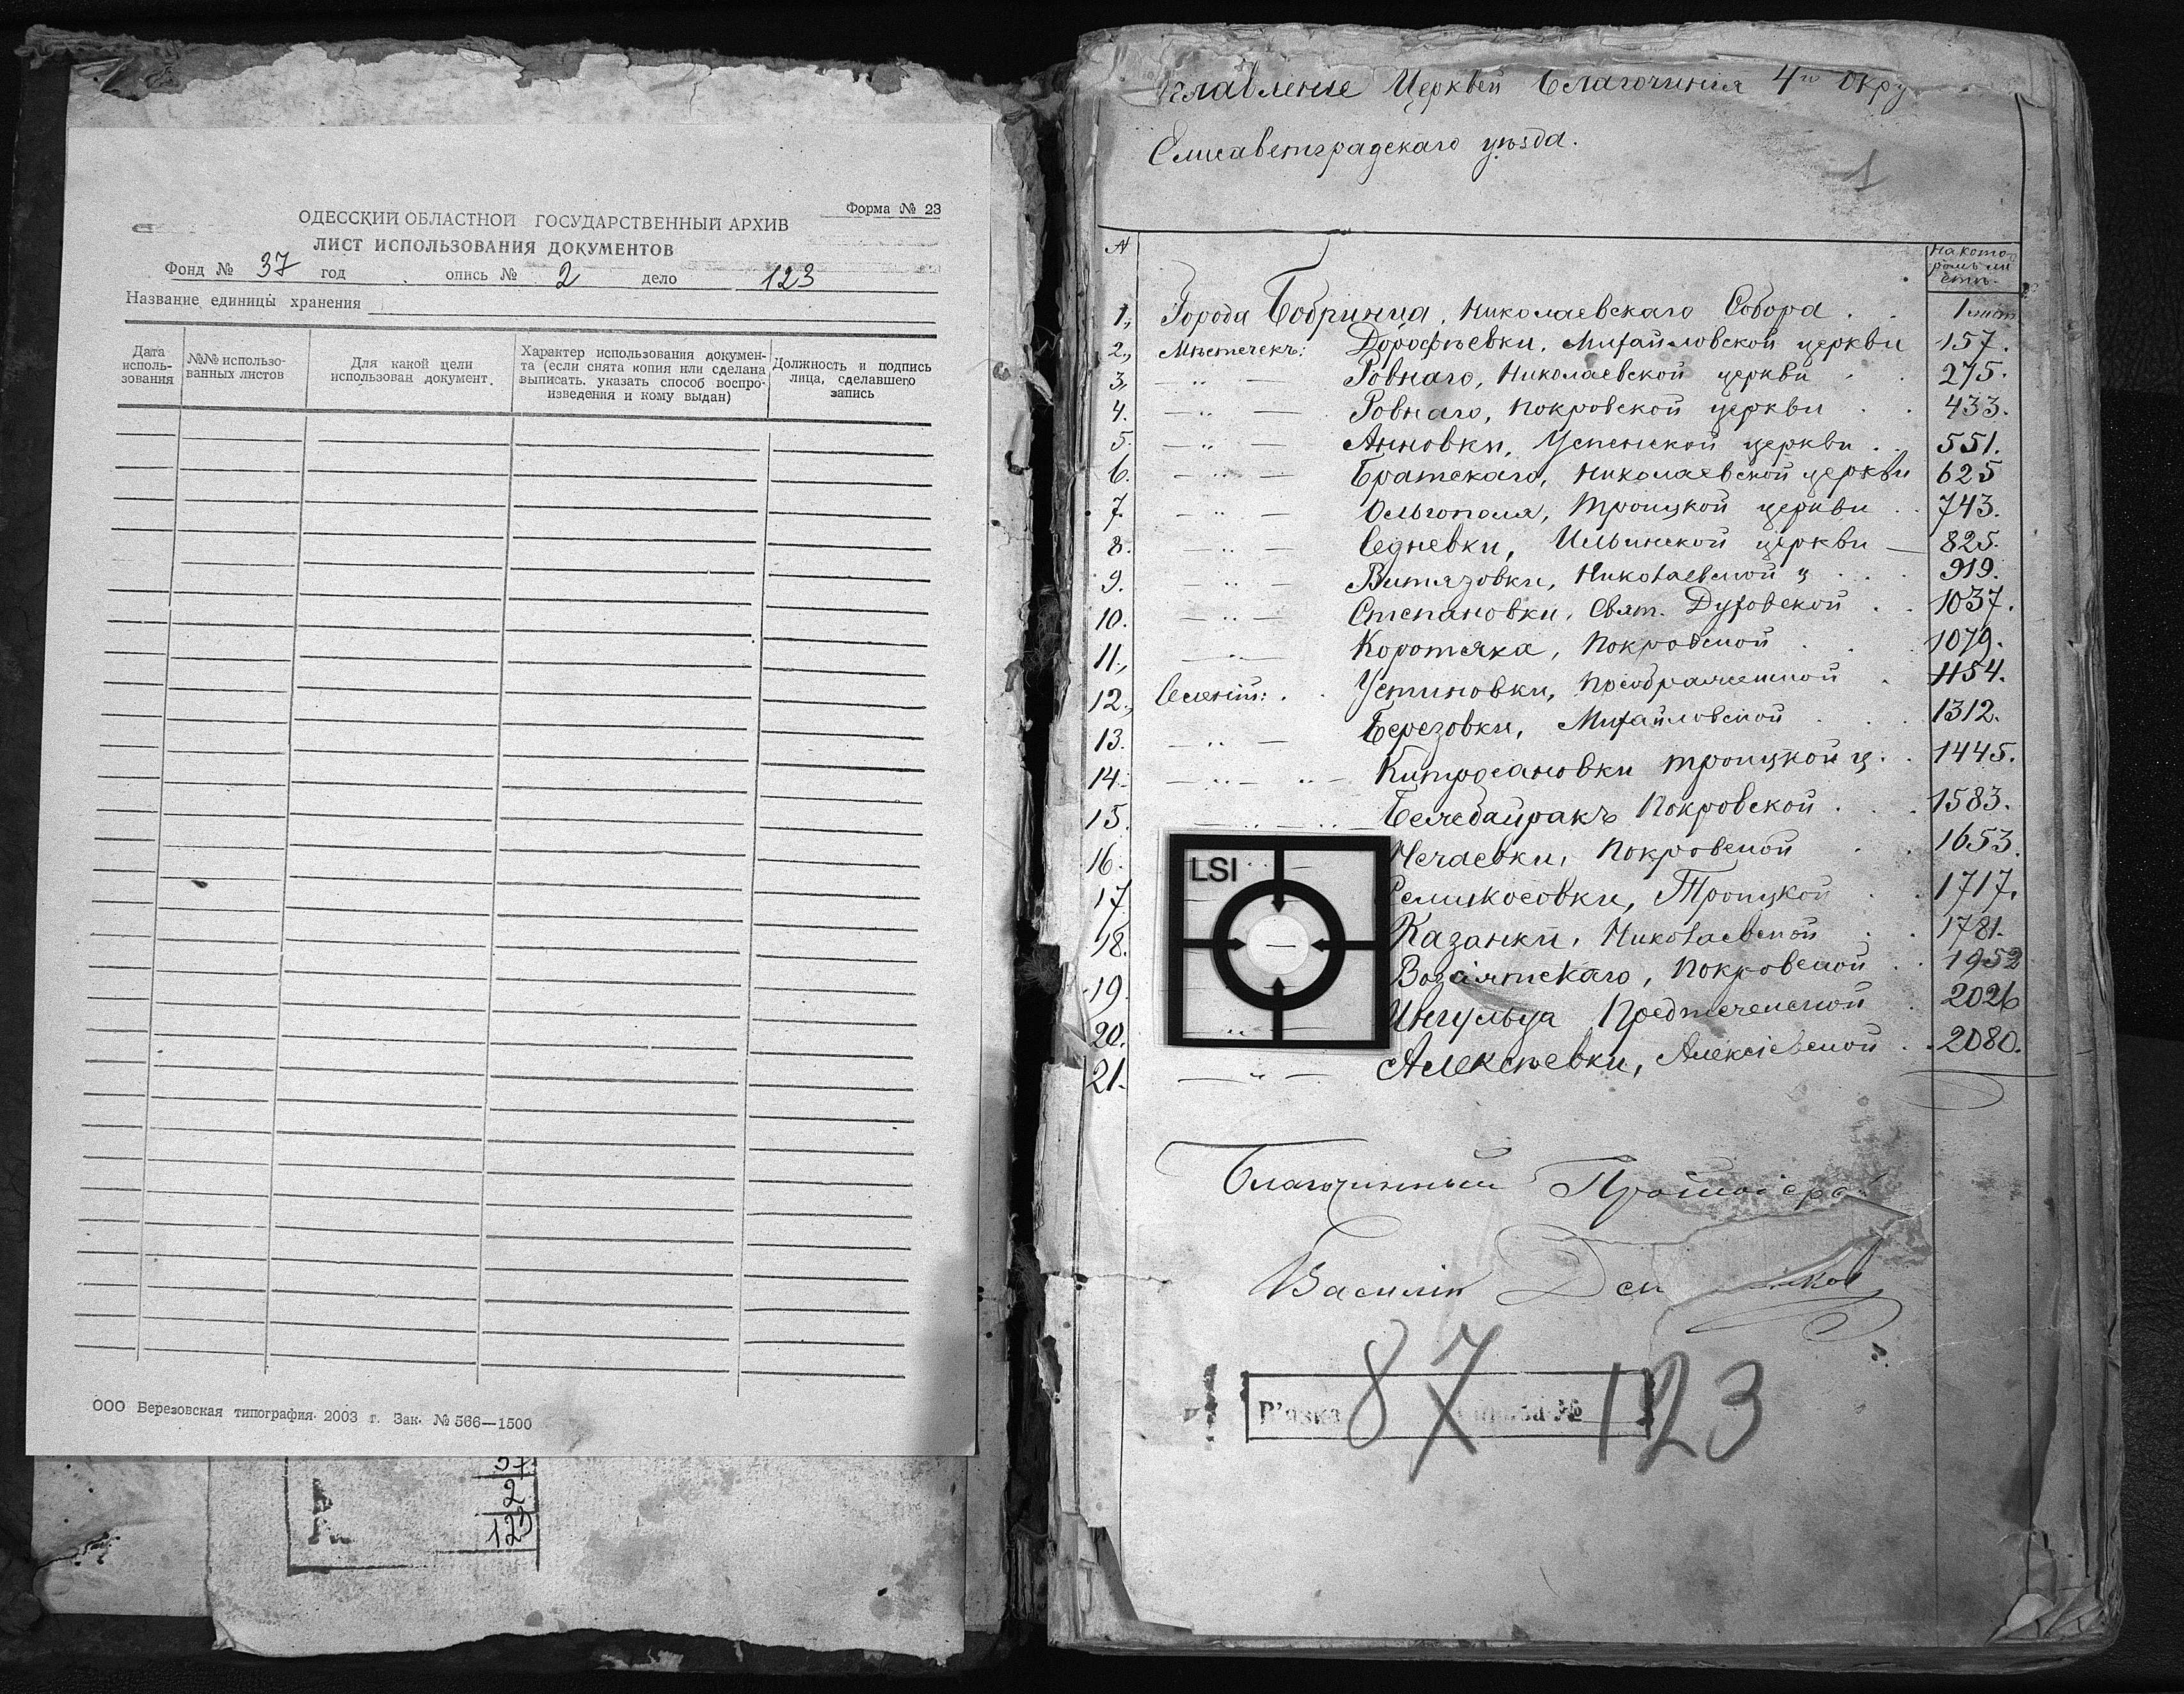 Форма № 23
ОДЕССКИЙ ОБЛАСТНОЙ ГОСУДАРСТВЕННЫЙ АРХИВ
ЛИСТ ИСПОЛЬЗОВАНИЯ ДОКУМЕНТОВ
Фонд № 37 год опись № 2 дело 123
Название единицы хранения
Дата исполь- зования
№№ использо- ванных листов
Для какой цели использован документ.
Характер использования докумен- та (если снята копия или сделана выписать. указать способ воспро- изведения и кому выдан)
Должность и подпись лица, сделавшего запись
ООО Березовская типография. 2003 г. Зак. № 566—1500
37
2
123
главленіе Церквей Благочинія 4го Окру
Елисаветградскаго уѣзда.
1
№ На кото- ромъ ли- стѣ.
1., Города Бобринца, Николаевскаго Собора . . 1 лист
2., Мѣстечекъ: Дорофѣевки, Михайловской церкви 157.
3, — „ — Ровнаго, Николаевской церкви . . 275.
4. — „ — Ровнаго, Покровской церкви . . 433.
5. — „ — Анновки, Успенской церкви . . 551.
6. — „ — Братскаго, Николаевской церкви 625
7. — „ — Ольгополя, Троицкой церкви . . 743.
8. — „ — Седневки, Ильинской церкви — 825.
9. — „ — Витязовки, Николаевской ц . . . 919.
10. — „ — Степановки, Свят. Духовской . . 1037.
11., — „ — Коротяка, Покровской . . . 1079.
12., Селеній: . . Устиновки, Преображенской . 1154.
13. — „ — Березовки, Михайловской . . . 1312.
14. — „ — „ — Китросановки Троицкой ц. . 1445.
15. — „ — „ — Бешбайракъ Покровской . . . 1583.
16. Нечаевки, Покровской . . 1653.
17. Семикосовки, Троицкой . . 1717.
18. Казанки, Николаевской . . 1781.
19. Возсіятскаго, Покровской . . 1952
20. Ингульца Предтеченской . 2026
21. — „ — Алексѣевки, Алексіевской . . 2080.
LSI
Благочинный
Василій
87 123